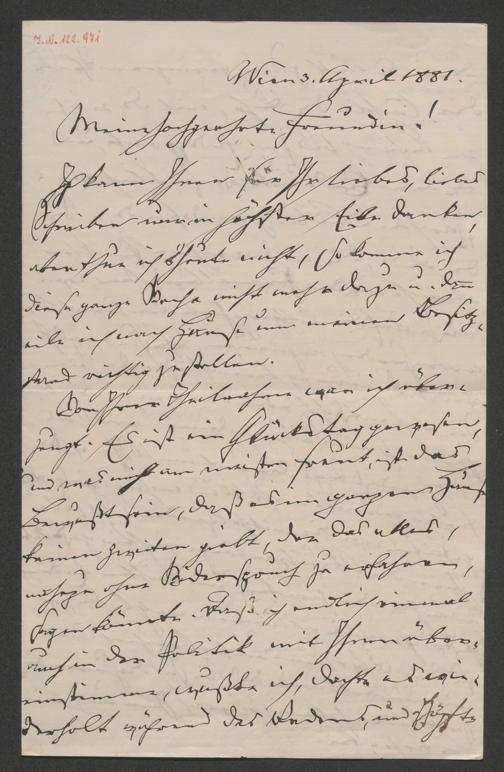 J.N. 122.971
Wien 3. April 1881.
Meine hochgeehrte Freundin!
Ich kann Ihnen für Ihr liebes, liebes
Schreiben nur in höchster Eile danken,
aber thue ich's heute nicht, so komme ich
diese ganze Woche nicht mehr dazu u. dann
eile ich nach Hause um meinen Besitz-
stand richtig zu stellen.
Von Ihrer Theilnahme war ich über-
zeugt. Es ist ein Glückstag gewesen,
und was mich am meisten freut, ist das
Bewußtsein, daß es im ganzen Hause
keinen zweiten giebt, der das alles,
nahezu ohne Widerspruch zu erfahren,
sagen könnte. Daß ich endlich einmal
auch in der Politik mit Ihnen über-
einstimme, wußte ich, dachte es wie-
derholt während des Redens, und schöpfte